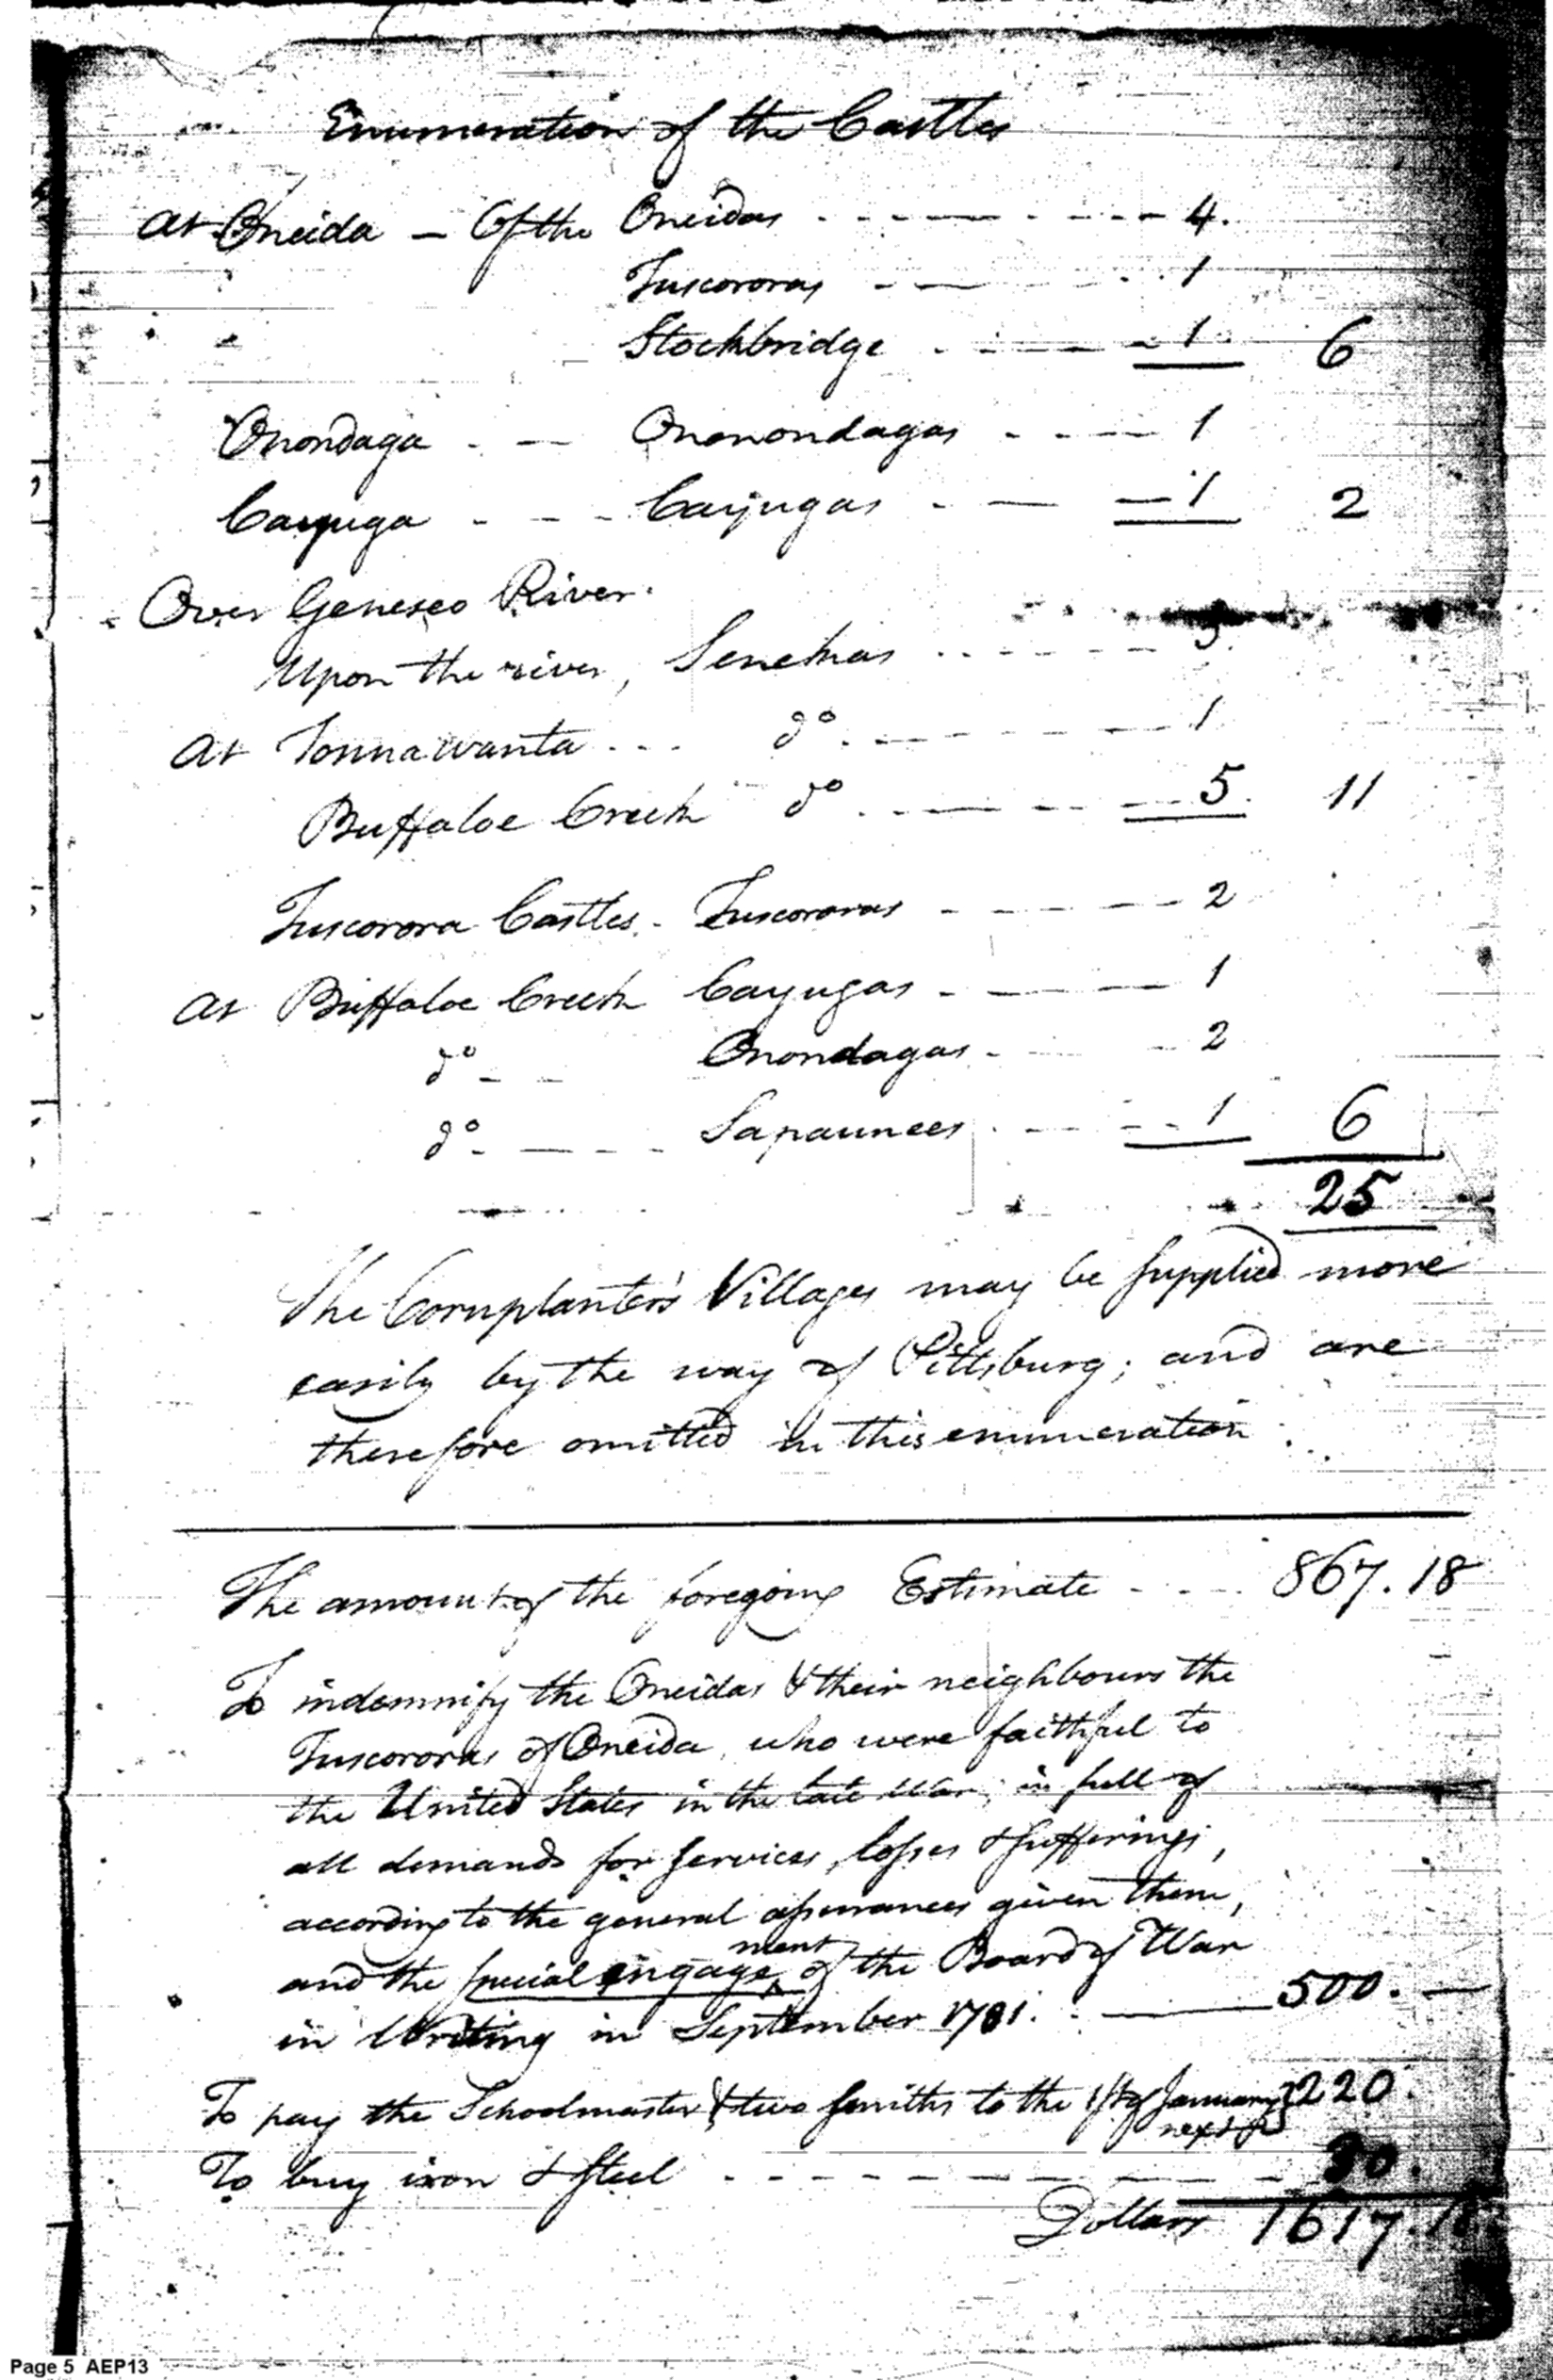 Enumeration of the Castles
At Oneida — Of the Oneidas - - - - - - 4.
Tuscororas - — - - - 1
Stockbridge - - — — - 1 6
Onondaga - — Ononondagas - - - — 1
Cayuga - - - Cayugas - — — 1 2
Over Geneseo River.
Upon the river, Senekas - - - - - - 5
At Tonnawanta - - - do. - — - - - — 1
Buffaloe Creek do. - — - - — 5. 11
Tuscorora Castles. - Tuscororas - - — - - 2
At Buffaloe Creek Cayugas - — - — 1
do - — Onondagas - - 2
do - — - - Sapaunees - - — - - 1 6
25
The Cornplanter's Villages may be supplied more
easily by the way of Pittsburg; and are
therefore omitted in this enumeration.
The amount of the foregoing Estimate - - - - 867.18
To indemnify the Oneidas & their neighbours the
Tuscororas of Oneida, who were faithful to
the United States in the late War, in full of
all demands for services, losses & sufferings,
according to the general assurances given them,
and the special engagement of the Board of War
in Writing in September 1781. - — 500. —
To pay the Schoolmaster & two smiths to the 1st of January next } 220.
To buy iron & steel - - - - — - — - 30.
Dollars 1617.18
Page 5 AEP13